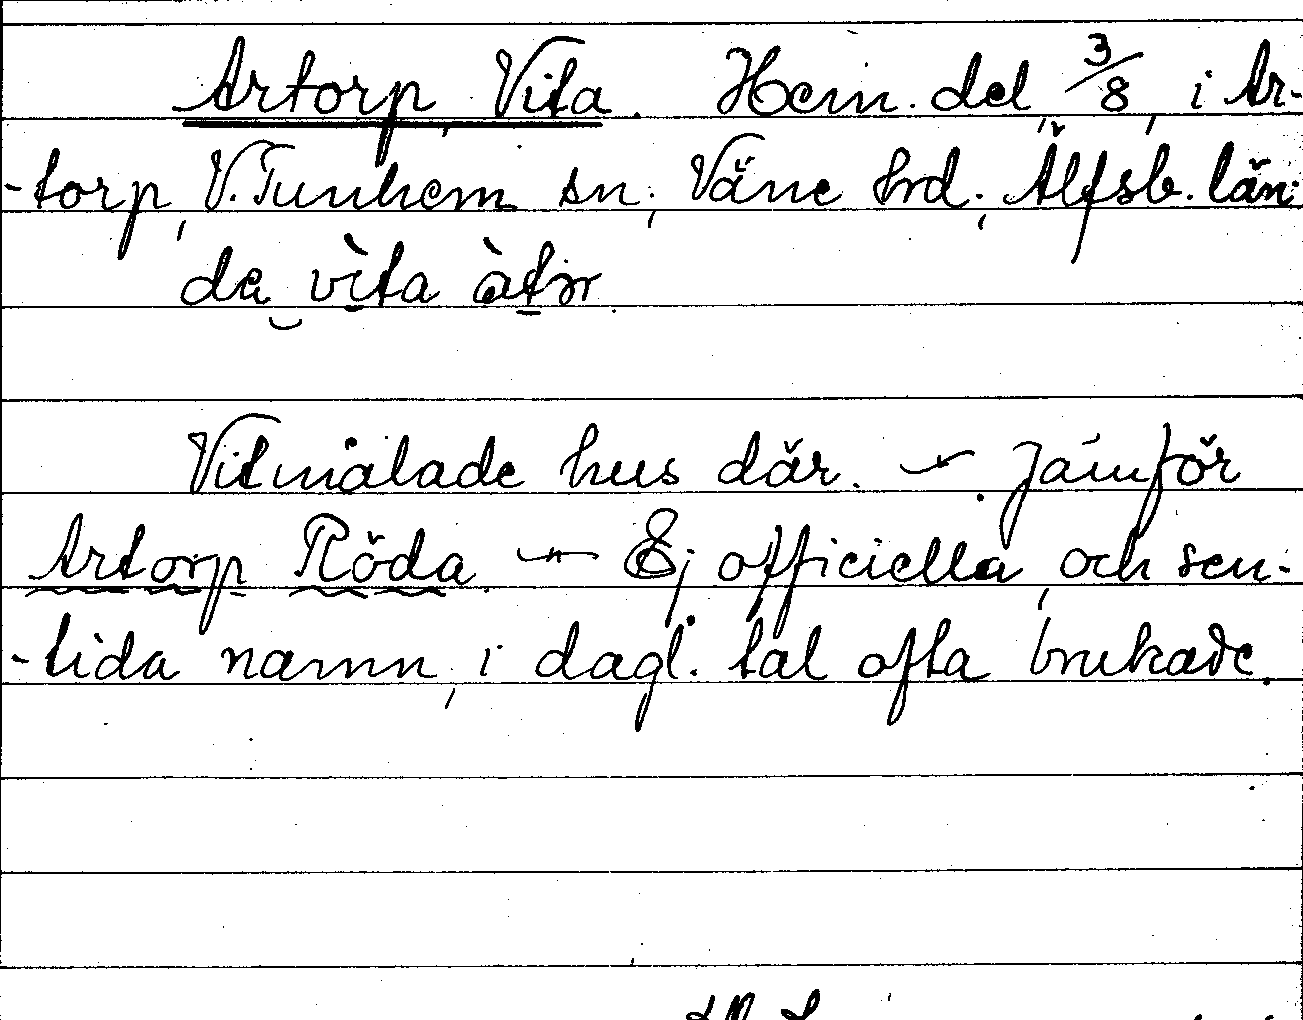 Artorp, Vita. Hem. del, 3/8, i Ar-
-torp, V. Tunhem sn, Väne hrd., Älfsb. län:
da vìta
Vitmålade hus där. — Jämför
Artorp Röda — Ej officiella, och sen-
-tida namn, i dagl. tal ofta brukade.